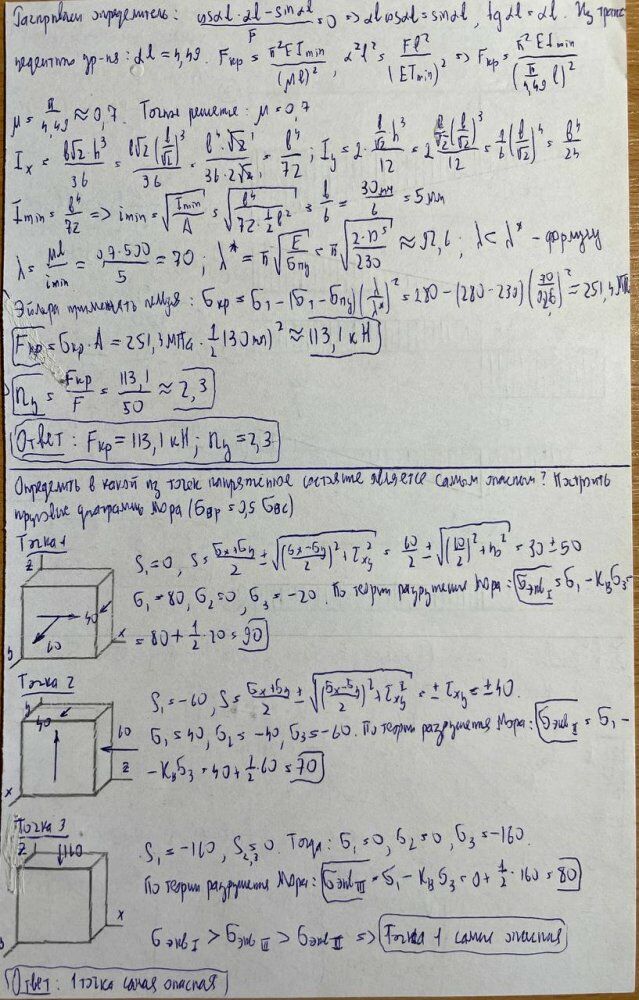 Раскрываем определитель: (cosαl·αl − sinαl)/F = 0 => αl cosαl = sinαl, tgαl = αl. Из транс
цедентного ур-ия: αl = 4,49. Fкр = π²EImin/(μl)², α²l² = Fl²/(EImin)² => Fкр = π²EImin/(π/4,49 l)²
μ = π/4,49 ≈ 0,7. Точное решение: μ = 0,7
Ix = b√2 h³/36 = b√2 (b/√2)³/36 = b⁴·√2/36·2√2 = b⁴/72; Iy = 2· b/√2 h³/12 = 2 b/√2 (b/√2)³/12 = 1/6 (b/√2)⁴ = b⁴/24
Imin = b⁴/72 => imin = √(Imin/A) = √(b⁴/72·½b²) = b/6 = 30мм/6 = 5мм
λ = μl/imin = 0,7·500/5 = 70; λ* = π√(E/σпц) = π√(2·10⁵/230) ≈ 92,6; λ < λ* - формулу
Эйлера применять нельзя: σкр = σт − (σт − σпц)(λ/λ*)² = 280 − (280 − 230)(70/92,6)² = 251,4 МПа
Fкр = σкр·A = 251,4МПа·½(30мм)² ≈ 113,1 кН
nу = Fкр/F = 113,1/50 ≈ 2,3
Ответ: Fкр = 113,1 кН; nу = 2,3
Определить в какой из точек напряженное состояние является самым опасным? Построить
круговые диаграммы Мора (σвр = 0,5 σвс)
Точка 1
z
40
60
x
y
S₁ = 0, S = (σx+σy)/2 ± √(((σx−σy)/2)² + τ²xy) = 60/2 ± √((60/2)² + 40²) = 30 ± 50
σ₁ = 80, σ₂ = 0, σ₃ = −20. По теории разрушения Мора: σэкв I = σ₁ − Kвσ₃ =
= 80 + ½·20 = 90
Точка 2
y
40
60
z
x
S₁ = −60, S = (σx+σy)/2 ± √(((σx−σy)/2)² + τ²xy) = ± τxy = ± 40.
σ₁ = 40, σ₂ = −40, σ₃ = −60. По теории разрушения Мора: σэкв II = σ₁ −
− Kвσ₃ = 40 + ½·60 = 70
Точка 3
z
160
x
y
S₁ = −160, S₂,₃ = 0. Тогда: σ₁ = 0, σ₂ = 0, σ₃ = −160.
По теории разрушения Мора: σэкв III = σ₁ − Kвσ₃ = 0 + ½·160 = 80
σэкв I > σэкв III > σэкв II => Точка 1 самая опасная
Ответ: 1 точка самая опасная